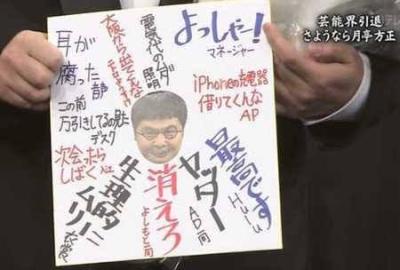 芸能界引退
さようなら月亭方正
よっしゃー!
マネージャー
電気代のムダ
照明
大阪から出てくんな
耳が
腐った
音声
この前
万引きしてるの見た
デスク
次会ったら
しばく
生理的に
ムリー
衣装
消えろ
よしもと一同
ヤッター
AD一同
最高です
Hulu
iPhoneの充電器
借りてくんな
AP